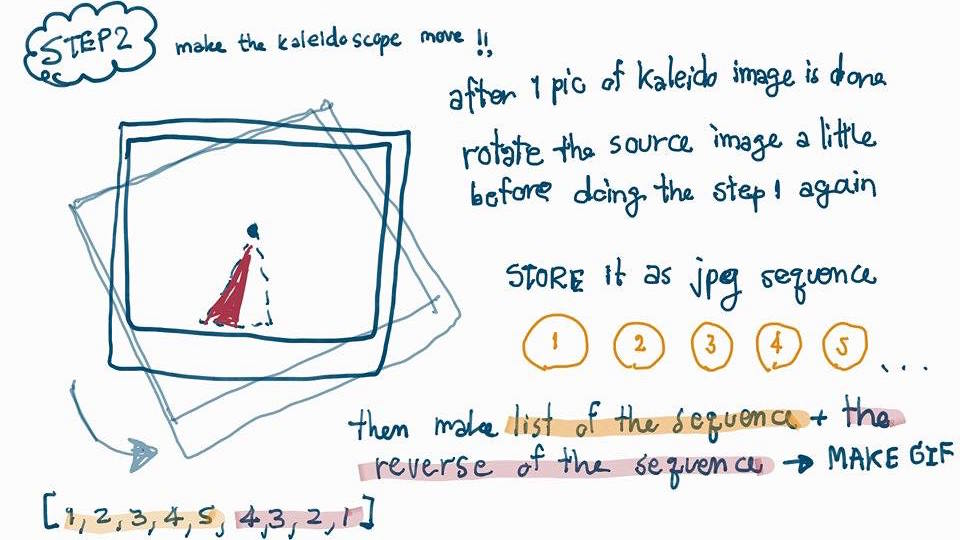 STEP2
make the kaleidoscope move !!
after 1 pic of kaleido image is done
rotate the source image a little
before doing the step 1 again
STORE it as jpg sequence
1 2 3 4 5 ...
then make list of the sequence + the
reverse of the sequence → MAKE GIF
[1, 2, 3, 4, 5, 4, 3, 2, 1]